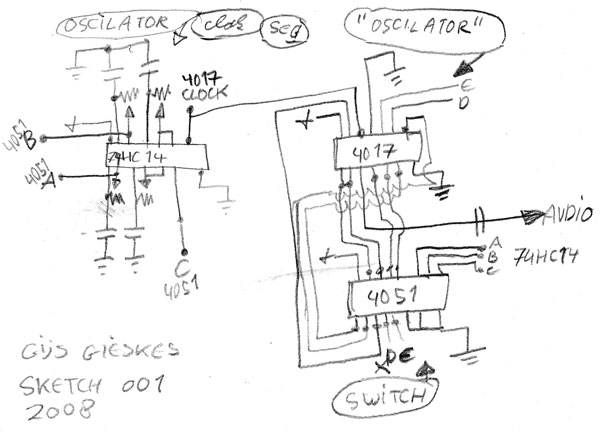 OSCILATOR
clock
SEQ
"OSCILATOR"
4017
CLOCK
E
D
4051
B
74HC14
4017
4051
A
AUDIO
A
B
C
74HC14
C
4051
4051
DE
X
SWITCH
GIJS GIESKES
SKETCH 001
2008